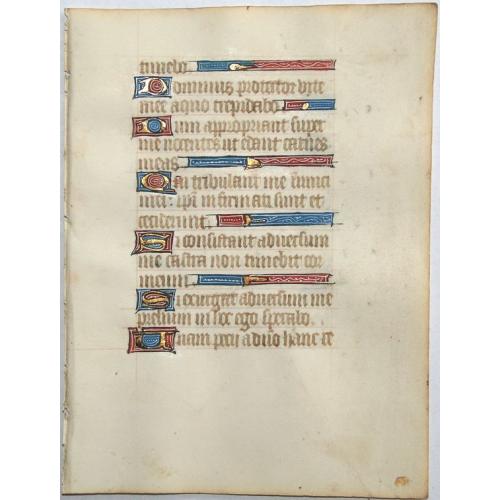 timebo
Dominus protector vite
mee a quo trepidabo
Dum appropriant super
me nocentes ut edant carnes
meas
Qui tribulant me inimici
mei: ipsi infirmati sunt et
ceciderunt
Si consistant adversum
me castra non timebit cor
meum
Si exurgat adversum me
prelium in hoc ego sperabo
Unam pecii a dno hanc re